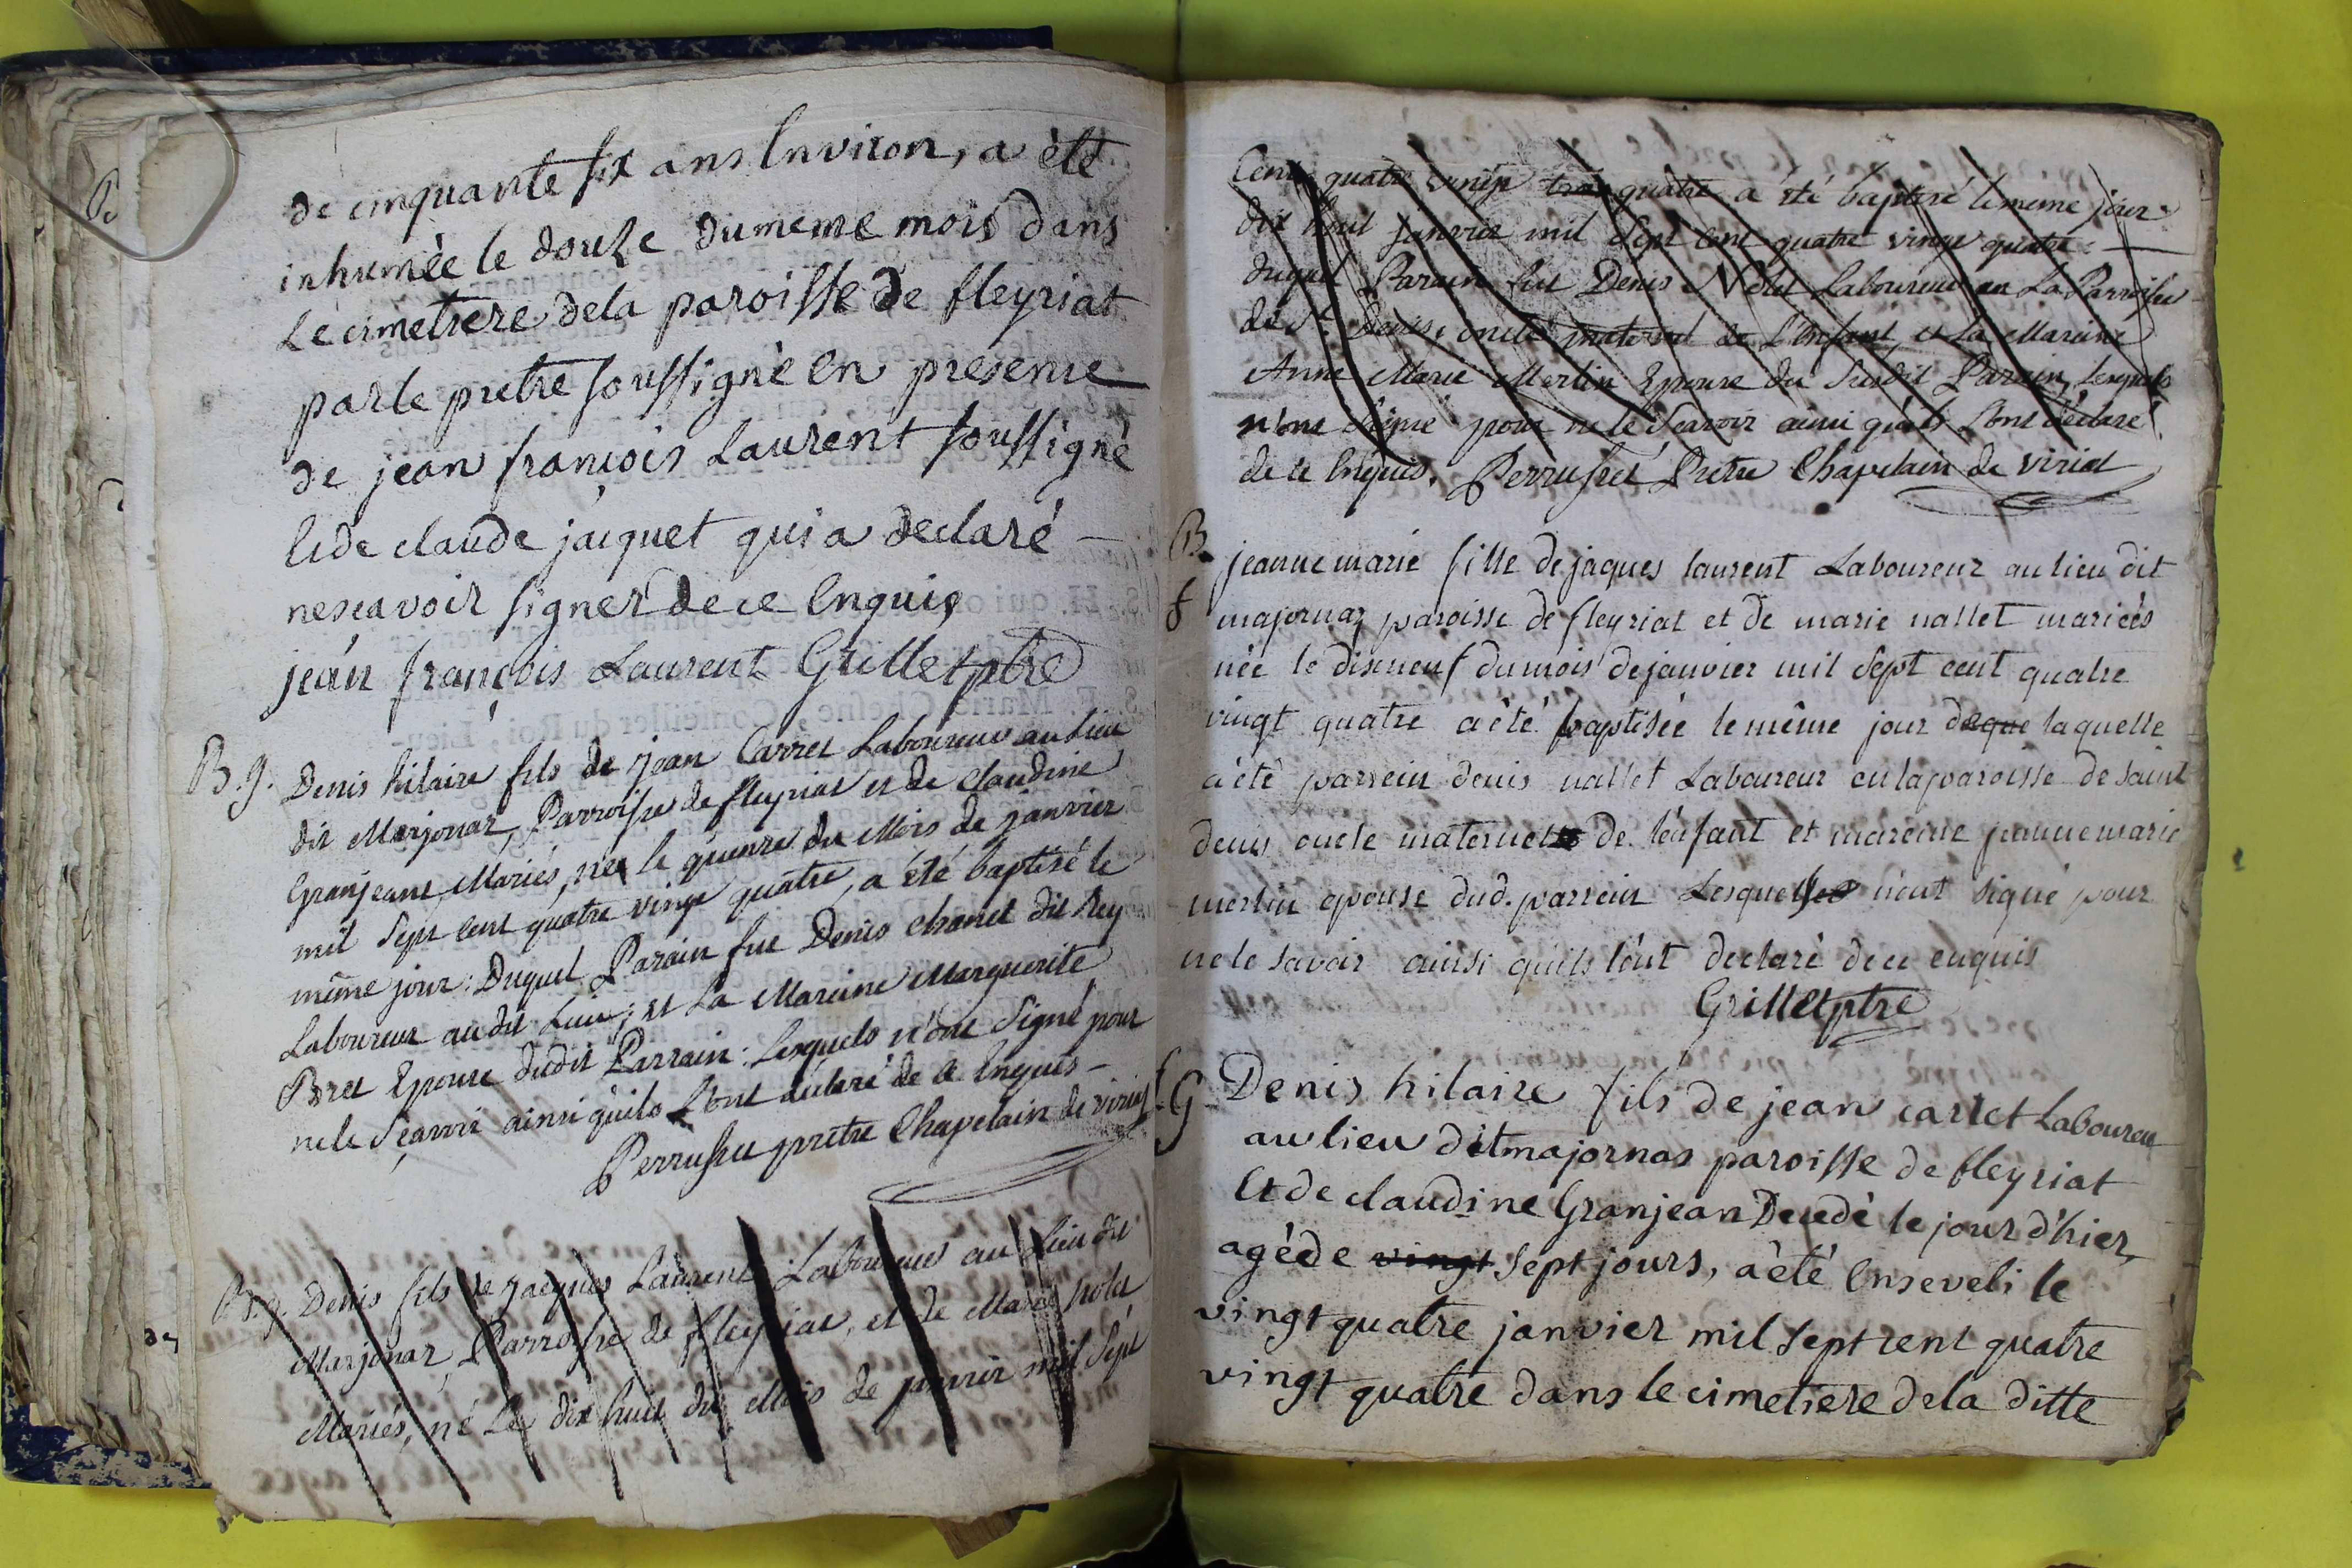 de cinquante six ans Environ, a èté
inhumèe le douse du meme mois dans
le cimetiere dela paroisse de fleyriat
par le prètre soussignè En presence
de jean francois Laurent soussignè
Et de claude jàcquet qui a declaré —
ne scavoir signer de ce Enquis
jean françois Laurent Grillet ptre
B. g. Denis hilaire fils de jean Carret Laboureur au Lieu
dit Marjonaz, Parroisse de fleyriat et de Claudine
Granjeant, Mariés, né le quinze du Mois de janvier
mil Sept Cent quatre vingt quatre, a été baptisé le
même jour: Duquel Parain fut Denis chanet dit Rey
Laboureur au dit Lieu; et La Mareine Marguerite
Bret Epouse dudit Parrain: Lesquels n'ont Signé pour
ne le Sçavoir ainsi qu'ils L'ont déclaré de ce Enquis —
Perrusset prètre Chapelain de viriat
B. g. Denis fils de jacques Laurent Laboureur au Lieu dit
Marjonaz, Parroisse de fleyriat, et de Marie Nolet
Mariés, né Le dix huit du Mois de janvier mil Sept
de
Cent quatre vingt trois quatre a été baptisé le même jour
dix huit janvier mil Sept Cent quatre vingt quatre: —
duquel Parain fut Denis Nolet Laboureur en La Parroisse
de St. Denis, oncle maternel de L'Enfant, et La Mareine
Anne Marie Merlin Epouse du Susdit Parain, Lesquels
n'ont Signé pour ne le Scavoir ainsi qu'ils L'ont déclaré
de ce Enquis. Perrusset Prètre Chapelain de viriat
B.
f
jeanne marie fille de jaques laurent Laboureur au lieu dit
majornaz paroisse de fleyriat et de marie nallet mariées
née le disneuf du mois de janvier mil sept cent quatre
vingt quatre a été baptisée le même jour deque laquelle
a été parrein denis nallet Laboureur en la paroisse de saint
denis oncle maternel de l'enfant et mareine jeanne marie
merlin epouse dud. parrein Lesquelles n'ont signé pour
ne le savoir ainsi qu'ils l'ont declaré de ce enquis
Grillet ptre
G Denis hilaire fils de jean carret Laboureu
au lieu dit majornas paroisse de fleyriat
Et de claudine Granjean Decedè le jour d'hier,
agé de vingt Sept jours, a èté Enseveli le
vingt quatre janvier mil sept cent quatre
vingt quatre dans le cimetiere de la ditte